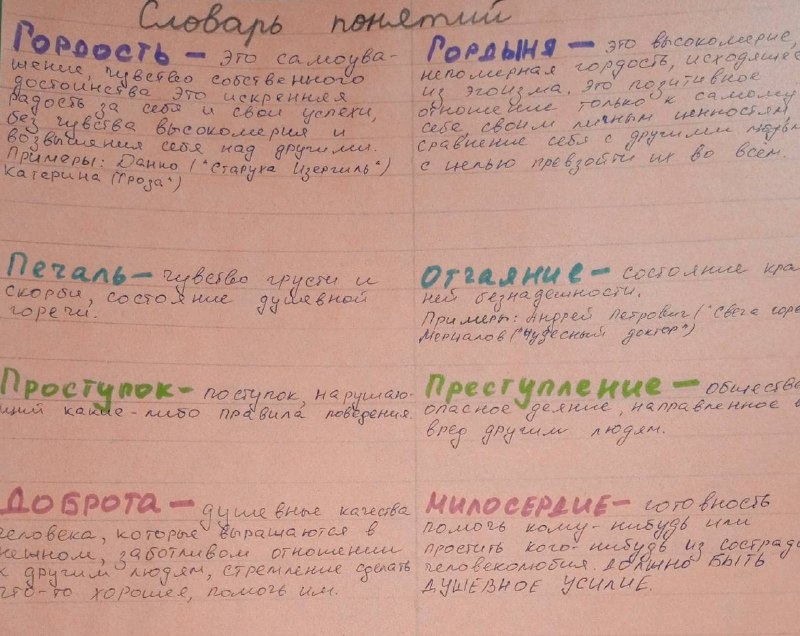 Словарь понятий
Гордость — это самоува-
шение, чувство собственного
достоинства это искренняя
радость за себя и свои успехи,
без чувства высокомерия и
возвышения себя над другими.
Примеры: Данко ("Старуха Изергиль")
Катерина ("Гроза")
Гордыня — это высокомерие,
непомерная гордость, исходящее
из эгоизма. Это позитивное
отношение только к самому
себе, своим личным ценностям,
сравнение себя с другими
с целью превзойти их во всём.
Печаль — чувство грусти и
скорби, состояние душевной
горечи.
Отчаяние — состояние край
ней безнадешности.
Примеры: Андрей Петрович ("Свеча горе
Мерцалов ("Чудесный доктор")
Проступок — поступок, нарушаю-
щий какие-либо правила поведения.
Преступление — обществе
опасное деяние, направленное в
вред другим людям.
Доброта — душевные качества
человека, которые вырашаются в
нешном, заботливом отношении
к другим людям, стремление сделать
что-то хорошее, помочь им.
Милосердие — готовность
помочь кому-нибудь или
простить кого-нибудь из сострада
человеколюбия. ДОЛШНО БЫТЬ
ДУШЕВНОЕ УСИЛИЕ.